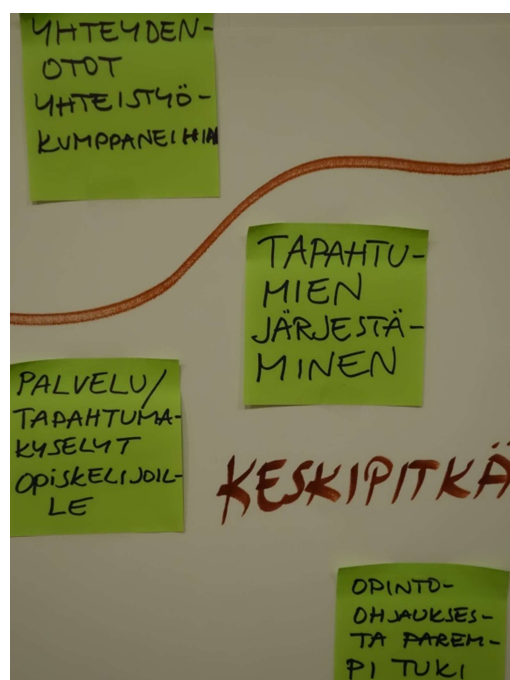 YHTEYDEN-
OTOT
YHTEISTYÖ-
KUMPPANEIHIN
TAPAHTU-
MIEN
JÄRJESTÄ-
MINEN
PALVELU/
TAPAHTUMA-
KYSELYT
OPISKELIJOIL-
LE
KESKIPITKÄ
OPINTO-
OHJAUKSES-
TA PAREM-
PI TUKI